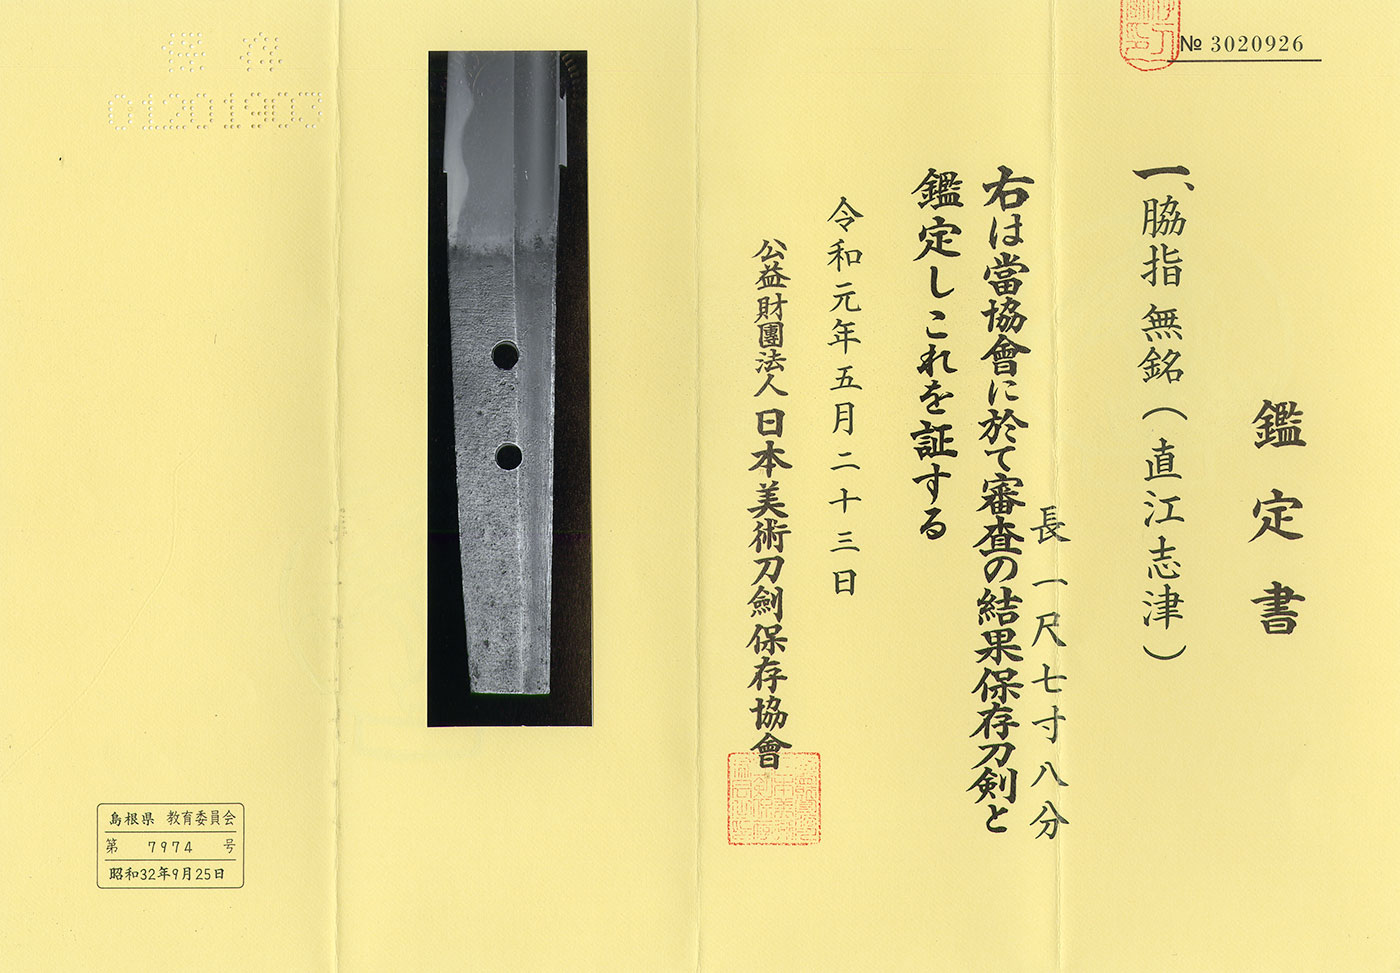 № 3020926
鑑定書
一、脇指 無銘(直江志津)
長 一尺七寸八分
右は當協會に於て審査の結果保存刀剣と
鑑定しこれを証する
令和元年五月二十三日
公益財團法人 日本美術刀劍保存協會
保存
01201903
島根県 教育委員会
第 7974 号
昭和32年9月25日